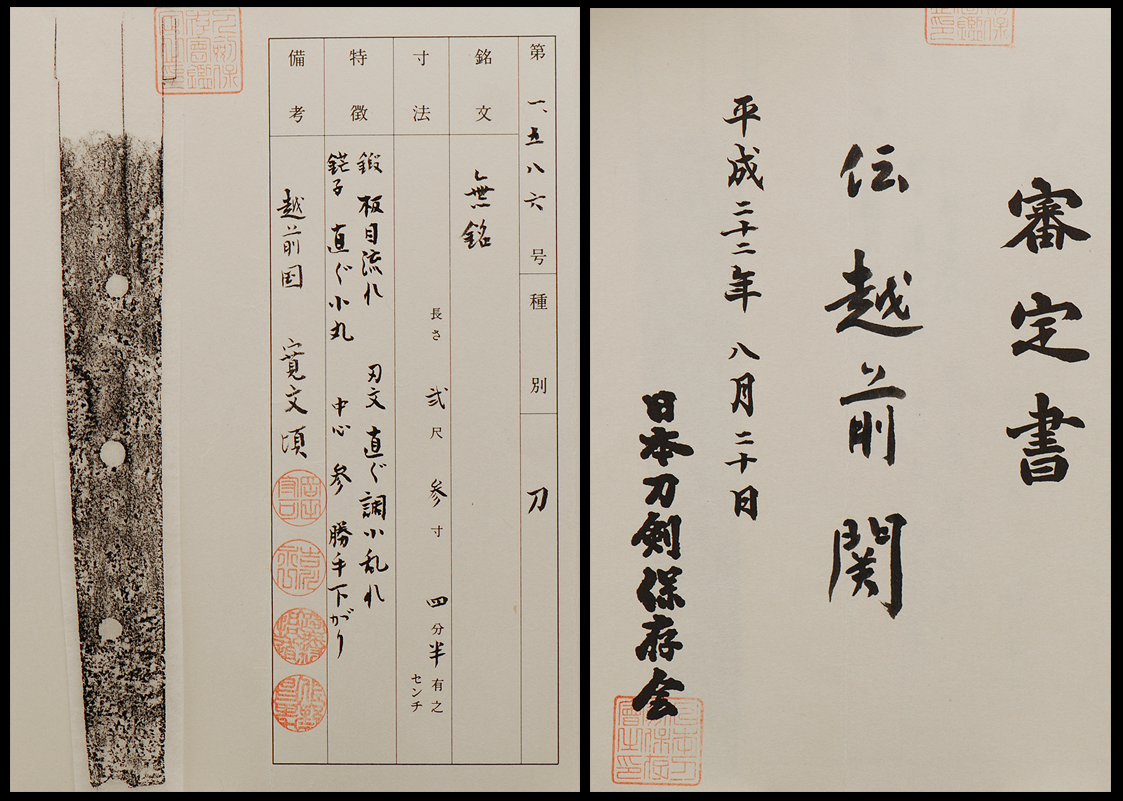 審定書
伝 越前関
平成二十二年 八月二十日
日本刀剣保存会
第一、五八六号
種別 刀
銘文 無銘
寸法 長さ 弐尺 参寸 四分半有之
センチ
特徴 鍛 板目流れ 刃文 直ぐ調小乱れ
鋩子 直ぐ小丸 中心 参 勝手下がり
備考 越前国 寛文頃